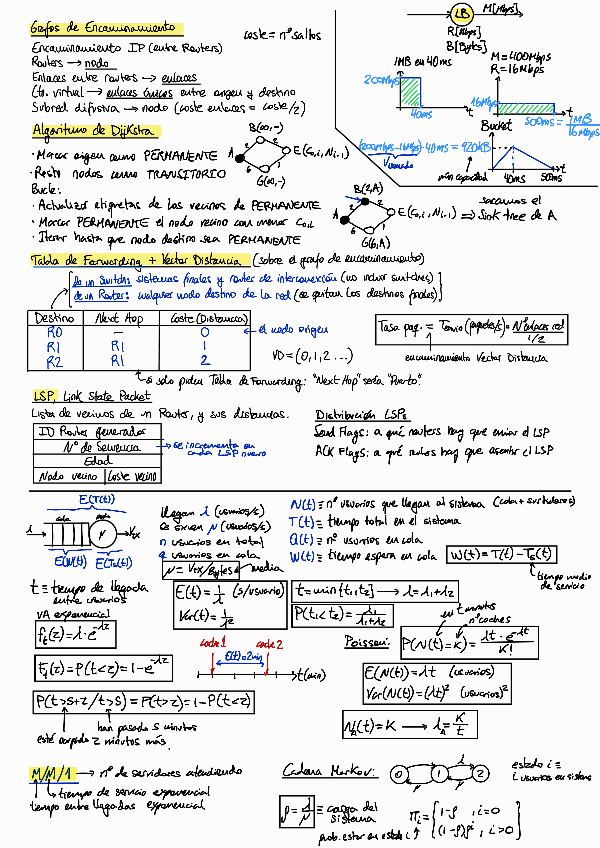 Grafos de Encaminamiento
coste = nº saltos
Encaminamiento IP (entre Routers)
Routers → nodo
Enlaces entre routers → enlaces
Cto. virtual → enlaces únicos entre origen y destino
Subred difusiva → nodo (coste enlaces = coste/2)
LB
M[Mbps]
R[Mbps]
B[Bytes]
1MB en 40ms
200Mbps
40ms
t
M = 400Mbps
R = 16Mbps
16Mbps
500ms = 1MB/16Mbps
Bucket
(200Mbps-16Mbps)·40ms = 920kB
mín capacidad
40ms
500ms
t
Algoritmo de Dijkstra
· Marcar origen como PERMANENTE
· Resto nodos como TRANSITORIO
Bucle:
· Actualizar etiquetas de los vecinos de PERMANENTE
· Marcar PERMANENTE el nodo vecino con menor C0,i
· Iterar hasta que nodo destino sea PERMANENTE
B(∞,-)
A
E(C0,i, Ni-1)
G(∞,-)
B(2,A)
A
E(C0,i, Ni-1) ⇒
G(6,A)
sacamos el
Sink tree de A
Tabla de Forwarding + Vector Distancia (sobre el grafo de encaminamiento)
de un Switch: sistemas finales y router de interconexión (no incluir switches)
de un Router: cualquier nodo destino de la red (se quitan los destinos finales)
Destino Next Hop Coste (Distancia)
R0 — 0 ← el nodo origen
R1 R1 1
R2 R1 2
VD = (0,1,2...)
si solo piden Tabla de Forwarding: "Next Hop" sería "Puerto".
encaminamiento Vector Distancia
LSP, Link State Packet
Lista de vecinos de un Router, y sus distancias.
ID Router generador
Nº de Secuencia → se incrementa en cada LSP nuevo
Edad
Nodo vecino Coste vecino
Distribución LSPs
Send Flags: a qué routers hay que enviar el LSP
ACK Flags: a qué routers hay que asentir el LSP
E(T(t))
cola
λ
μ
Vtx
E(W(t)) E(Ts(t))
llegan λ (usuarios/s)
se sirven μ (usuarios/s)
n usuarios en total
q usuarios en cola
μ = Vtx/Bytes ← media
N(t) ≡ nº usuarios que llegan al sistema (cola + servidores)
T(t) ≡ tiempo total en el sistema
Q(t) ≡ nº usuarios en cola
W(t) ≡ tiempo espera en cola
W(t) = T(t) - Ts(t)
tiempo medio de servicio
t ≡ tiempo de llegada
entre usuarios
VA exponencial
E(t) = 1/λ (s/usuario)
Var(t) = 1/λ²
t = min{t1,t2} → λ = λ1+λ2
P(t1<t2) = λ1/(λ1+λ2)
ft(z) = λ·e^-λz
Ft(z) = P(t<z) = 1-e^-λz
coche 1
coche 2
E(t) = 2min
t(min)
en t minutos
nº coches
Poisson:
P(N(t)=K) = λt·e^-λt/K!
E(N(t)) = λt (usuarios)
Var(N(t)) = (λt)² (usuarios)²
P(t>s+z/t>s) = P(t>z) = 1-P(t<z)
han pasado s minutos
esté ocupado z minutos más.
M/M/1 → nº de servidores atendiendo
tiempo de servicio exponencial
tiempo entre llegadas exponencial
Cadena Markov:
0 1 2
estado i ≡
i usuarios en sistema
ρ = λ/μ ≡ carga del sistema
prob. estar en estado i
Πi = { 1-ρ , i=0
(1-ρ)ρ^i , i>0 }